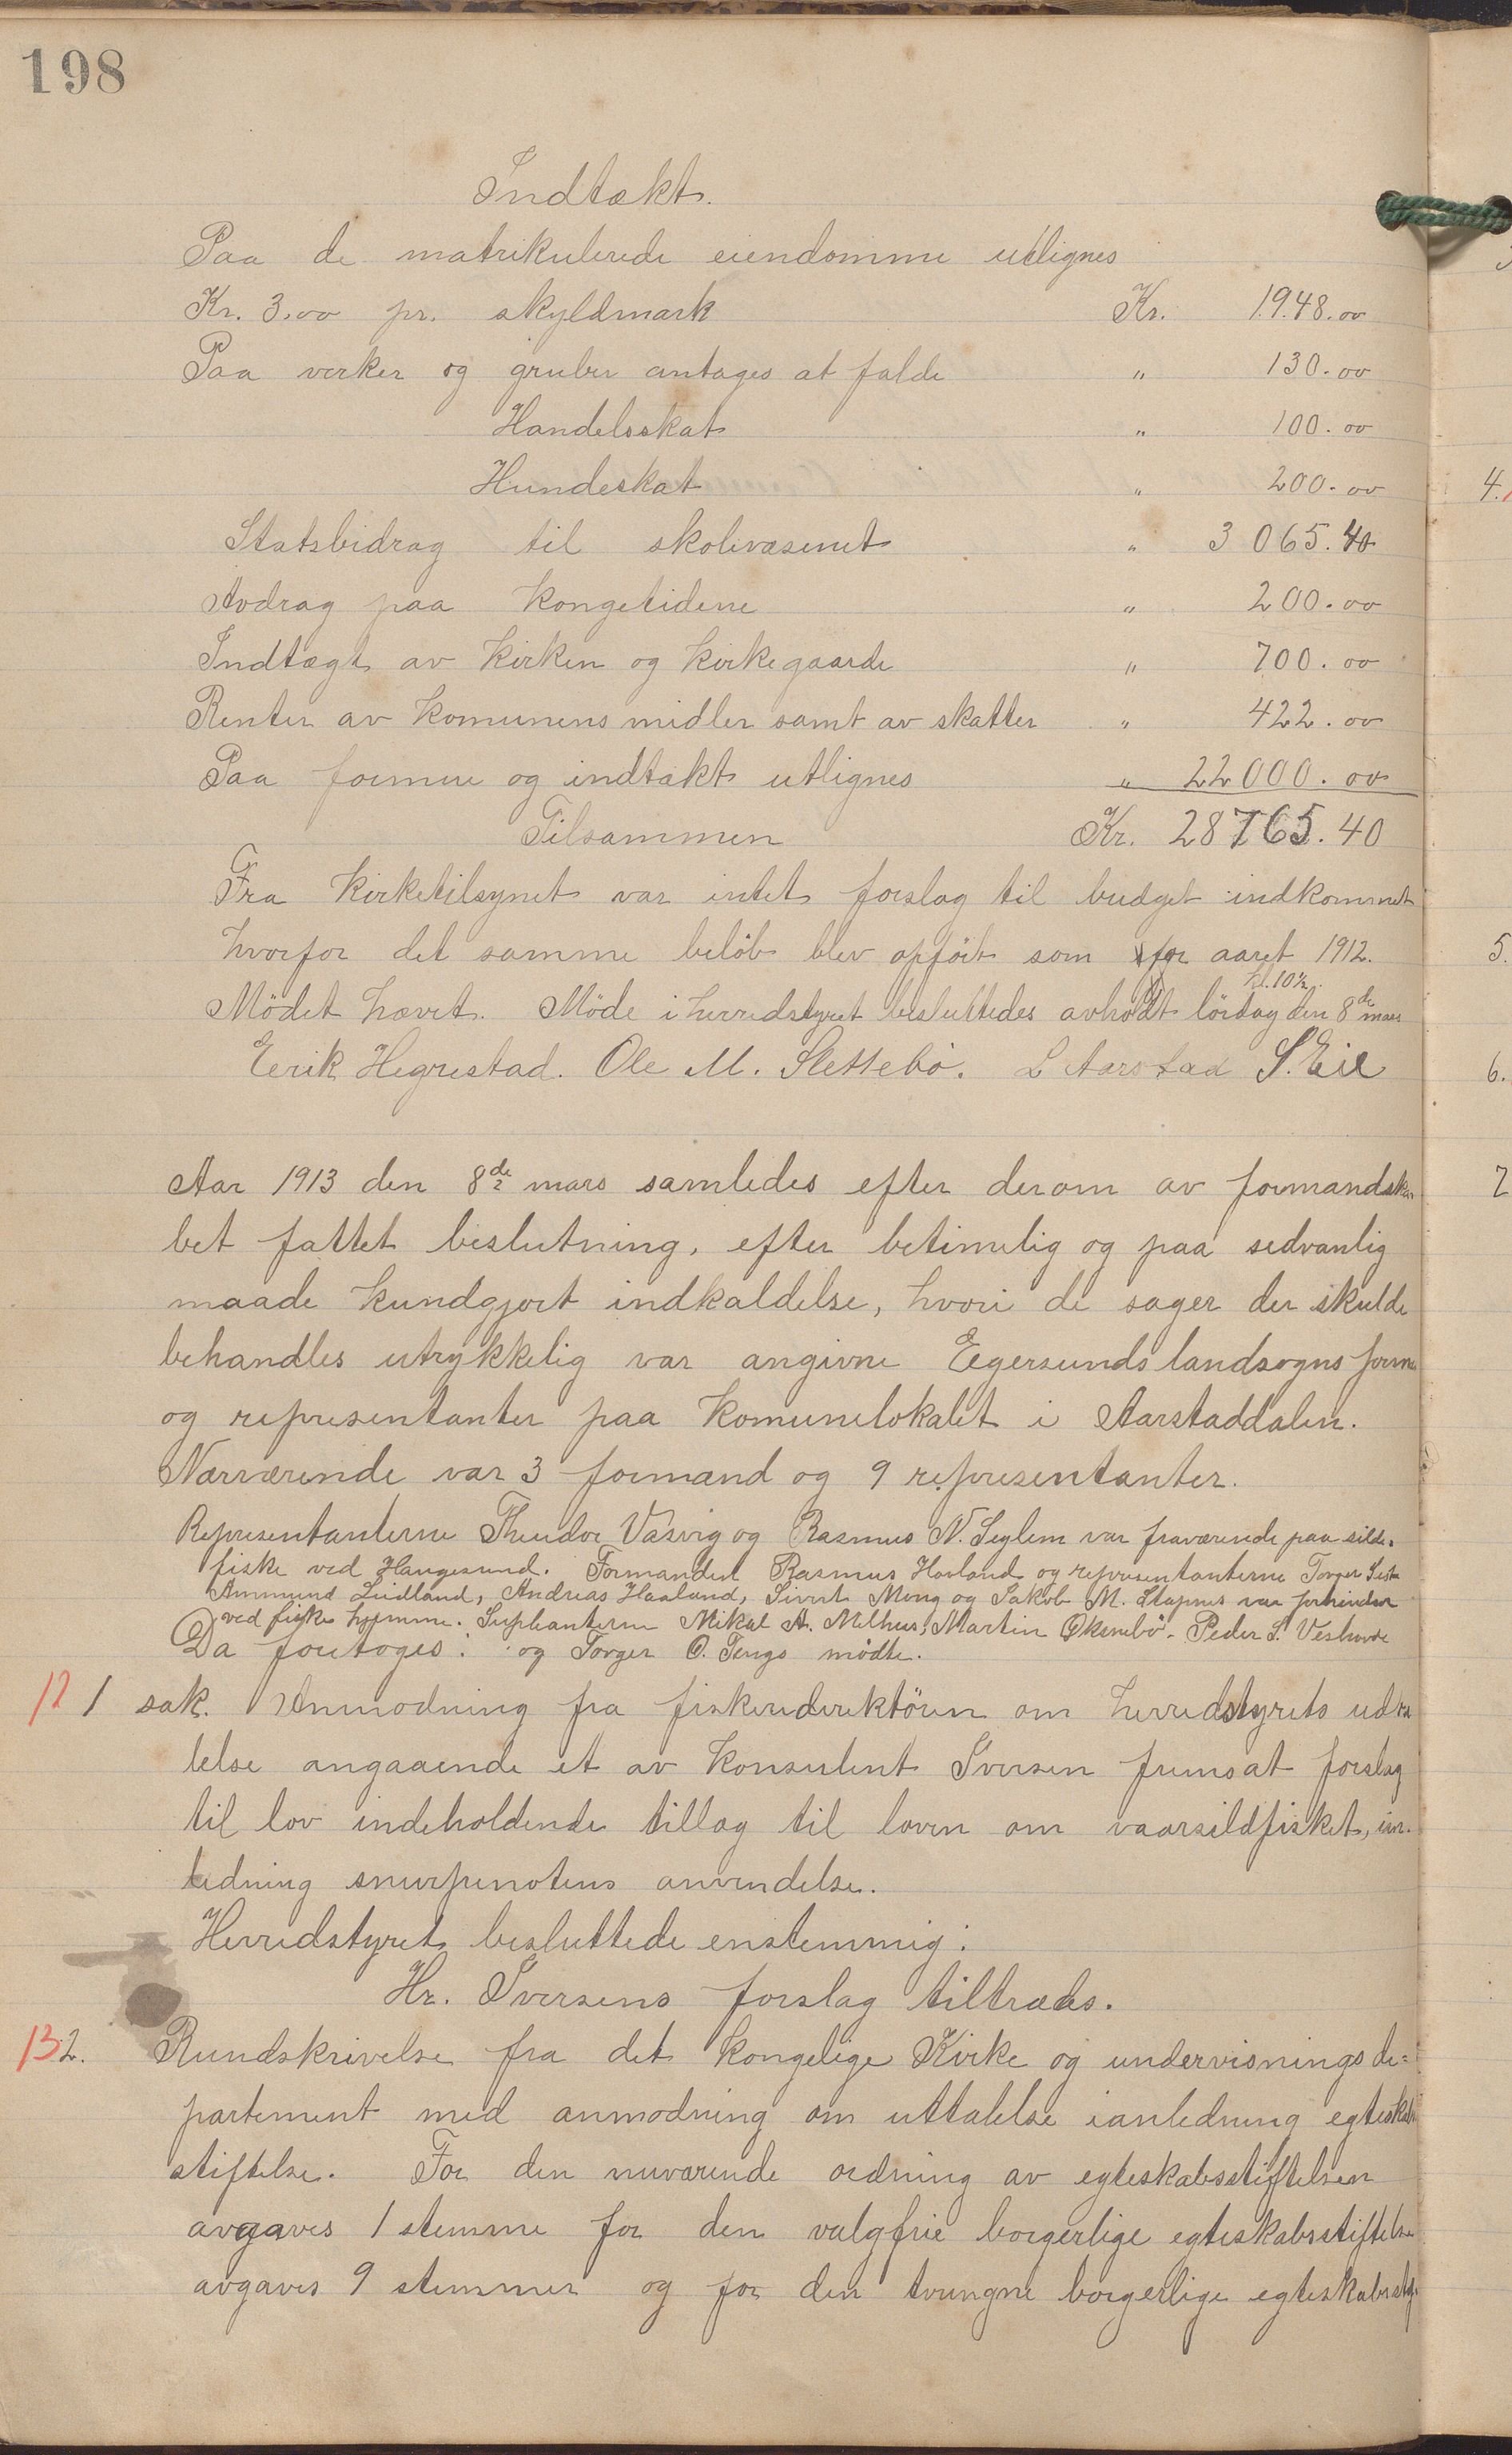 198
Indtækt.
Paa de matrikulerede eiendomme utlignes
Kr. 3.00 pr. skyldmark Kr. 1948.00
Paa verker og gruber antages at falde " 130.00
Handelsskat " 100.00
Hundeskat " 200.00
Statsbidrag til skolevæsenet " 3 065.40
Avdrag paa Kongetidene " 200.00
Indtægt av kirken og kirkegaarde " 700.00
Renter av Komunens midler samt av skatter " 422.00
Paa formue og indtækt utlignes " 22000.00
Tilsammen Kr. 28765.40
Fra Kirketilsynet var intet forslag til budget indkommet
hvorfor det samme beløb blev opført som for aaret 1912.
kl. 10½.
Mödet hævet. Möde i herredstyret besluttedes avholdt lördag den 8de mars
Eerik Hegrestad. Ole M. Slettebö. L Aarstad S. Eie
Aar 1913 den 8de mars samledes efter derom av formandska
bet fattet beslutning, efter betimelig og paa sedvanlig
maade kundgjort indkaldelse, hvori de sager der skulde
behandles utrykkelig var angivne Egersunds landsogns form
og representanter paa Komunelokalet i Aarstaddalen.
Nærværende var 3 formænd og 9 representanter.
Representanterne Theodor Vasvig og Rasmus N. Seglem var fraværende paa silde-
fiske ved Haugesund. Formanden Rasmus Hovland og representanterne Torger
Ammund Lidland, Andreas Haaland, Sivert Mong og Jakob M. Stapnes var forhindre
ved fiske hjemme. Suplianterne Mikal A. Melhus, Martin Økenebö. Peder S. Veshovde
Da foretoges: og Torger O. Tengs mödte.
12 1 sak. Anmodning fra fiskeridirektören om herredstyrets udta
lelse angaaende et av konsulent Iversen fremsat forslag
til lov indeholdende tillæg til loven om vaarsildfisket, ian-
ledning snurpenotens anvendelse.
Herredstyret besluttede enstemmig:
Hr. Iversens forslag tiltrædes.
13 2. Rundskrivelse fra det kongelige Kirke og undervisnings de=
partement med anmodning om uttalelse ianledning egteskabs
stiftelse. For den nuværende ordning av egteskabsstiftelsen
avgaves 1 stemme for den valgfrie borgerlige egteskabsstiftelse
avgaves 9 stemmer og for den tvungne borgerlige egteskabsstif
4.
5.
6.
7